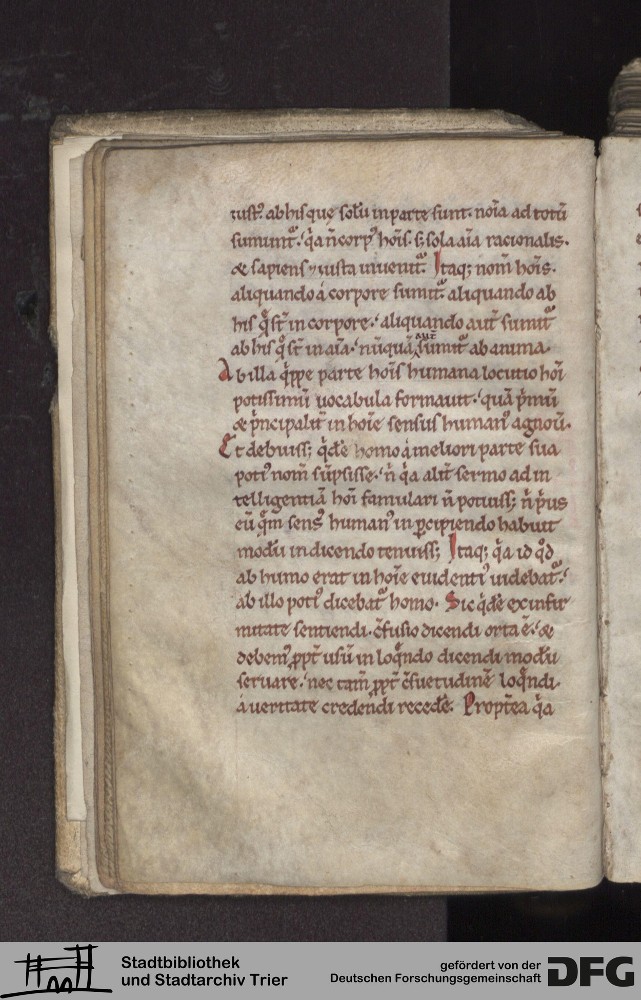 iust᷒. ab his quę solū in parte sunt. noı̄a ad totū
sumunt᷑. q̇a n̄ corp᷒ hoı̄s. s; sola aı̄a racionalis.
& sapiens ⁊ iusta inuenit᷑. Itaq; nom̄ hoı̄s.
aliquando á corpore sumit᷑. aliquando ab
his q̊ st̄ in corpore. aliquando aut̄ sumit᷑
ab his q̊ st̄ in aı̄a. nūquā aut̄ sumit᷑ ab anima.
Ab illa q̇ppe parte hoı̄s humana locutio hoı̄
potissimū uocabula formauit. quā ṗmū
& ṗncipalit̄ in hoı̄e sensus human᷒ agnou̅.
Et debuiss; q̇dē homo á meliori parte sua
poti᷒ nom̄ sūpsisse. n̄ q̇a alit̄ sermo ad in
telligentiā hoı̄ famulari n̄ potuiss; n̄ ṗus
eū q̊m sens᷒ human᷒ in p̱cipiendo habuit
modū in dicendo tenuiss; Itaq; q̇a id qd̊
ab humo erat in hoı̄e euidenti᷒ uidebat᷑.
ab illo poti᷒ dicebat᷑ homo. Sic q̇dē ex infir
mitate sentiendi. c̄fusio dicendi orta ē. &
debem᷒ ꝓpt̄ usū in loq̊ndo dicendi modū
seruare. nec tam̄ ꝓpt̄ c̄suetudinē loq̊ndi.
á ueritate credendi recedē. Propt̄ea q̇a
Stadtbibliothek
und Stadtarchiv Trier
gefördert von der
Deutschen Forschungsgemeinschaft
DFG